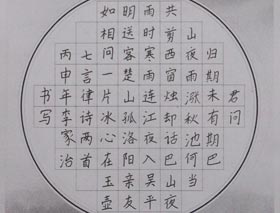 君问
归期未有期巴
山夜雨涨秋池何当
共剪西窗烛却话巴山夜
雨时寒雨连江夜入吴平
明送客楚山孤洛阳亲友
如相问一片冰心在玉壶
七言律诗两首
丙申年李家治
书写